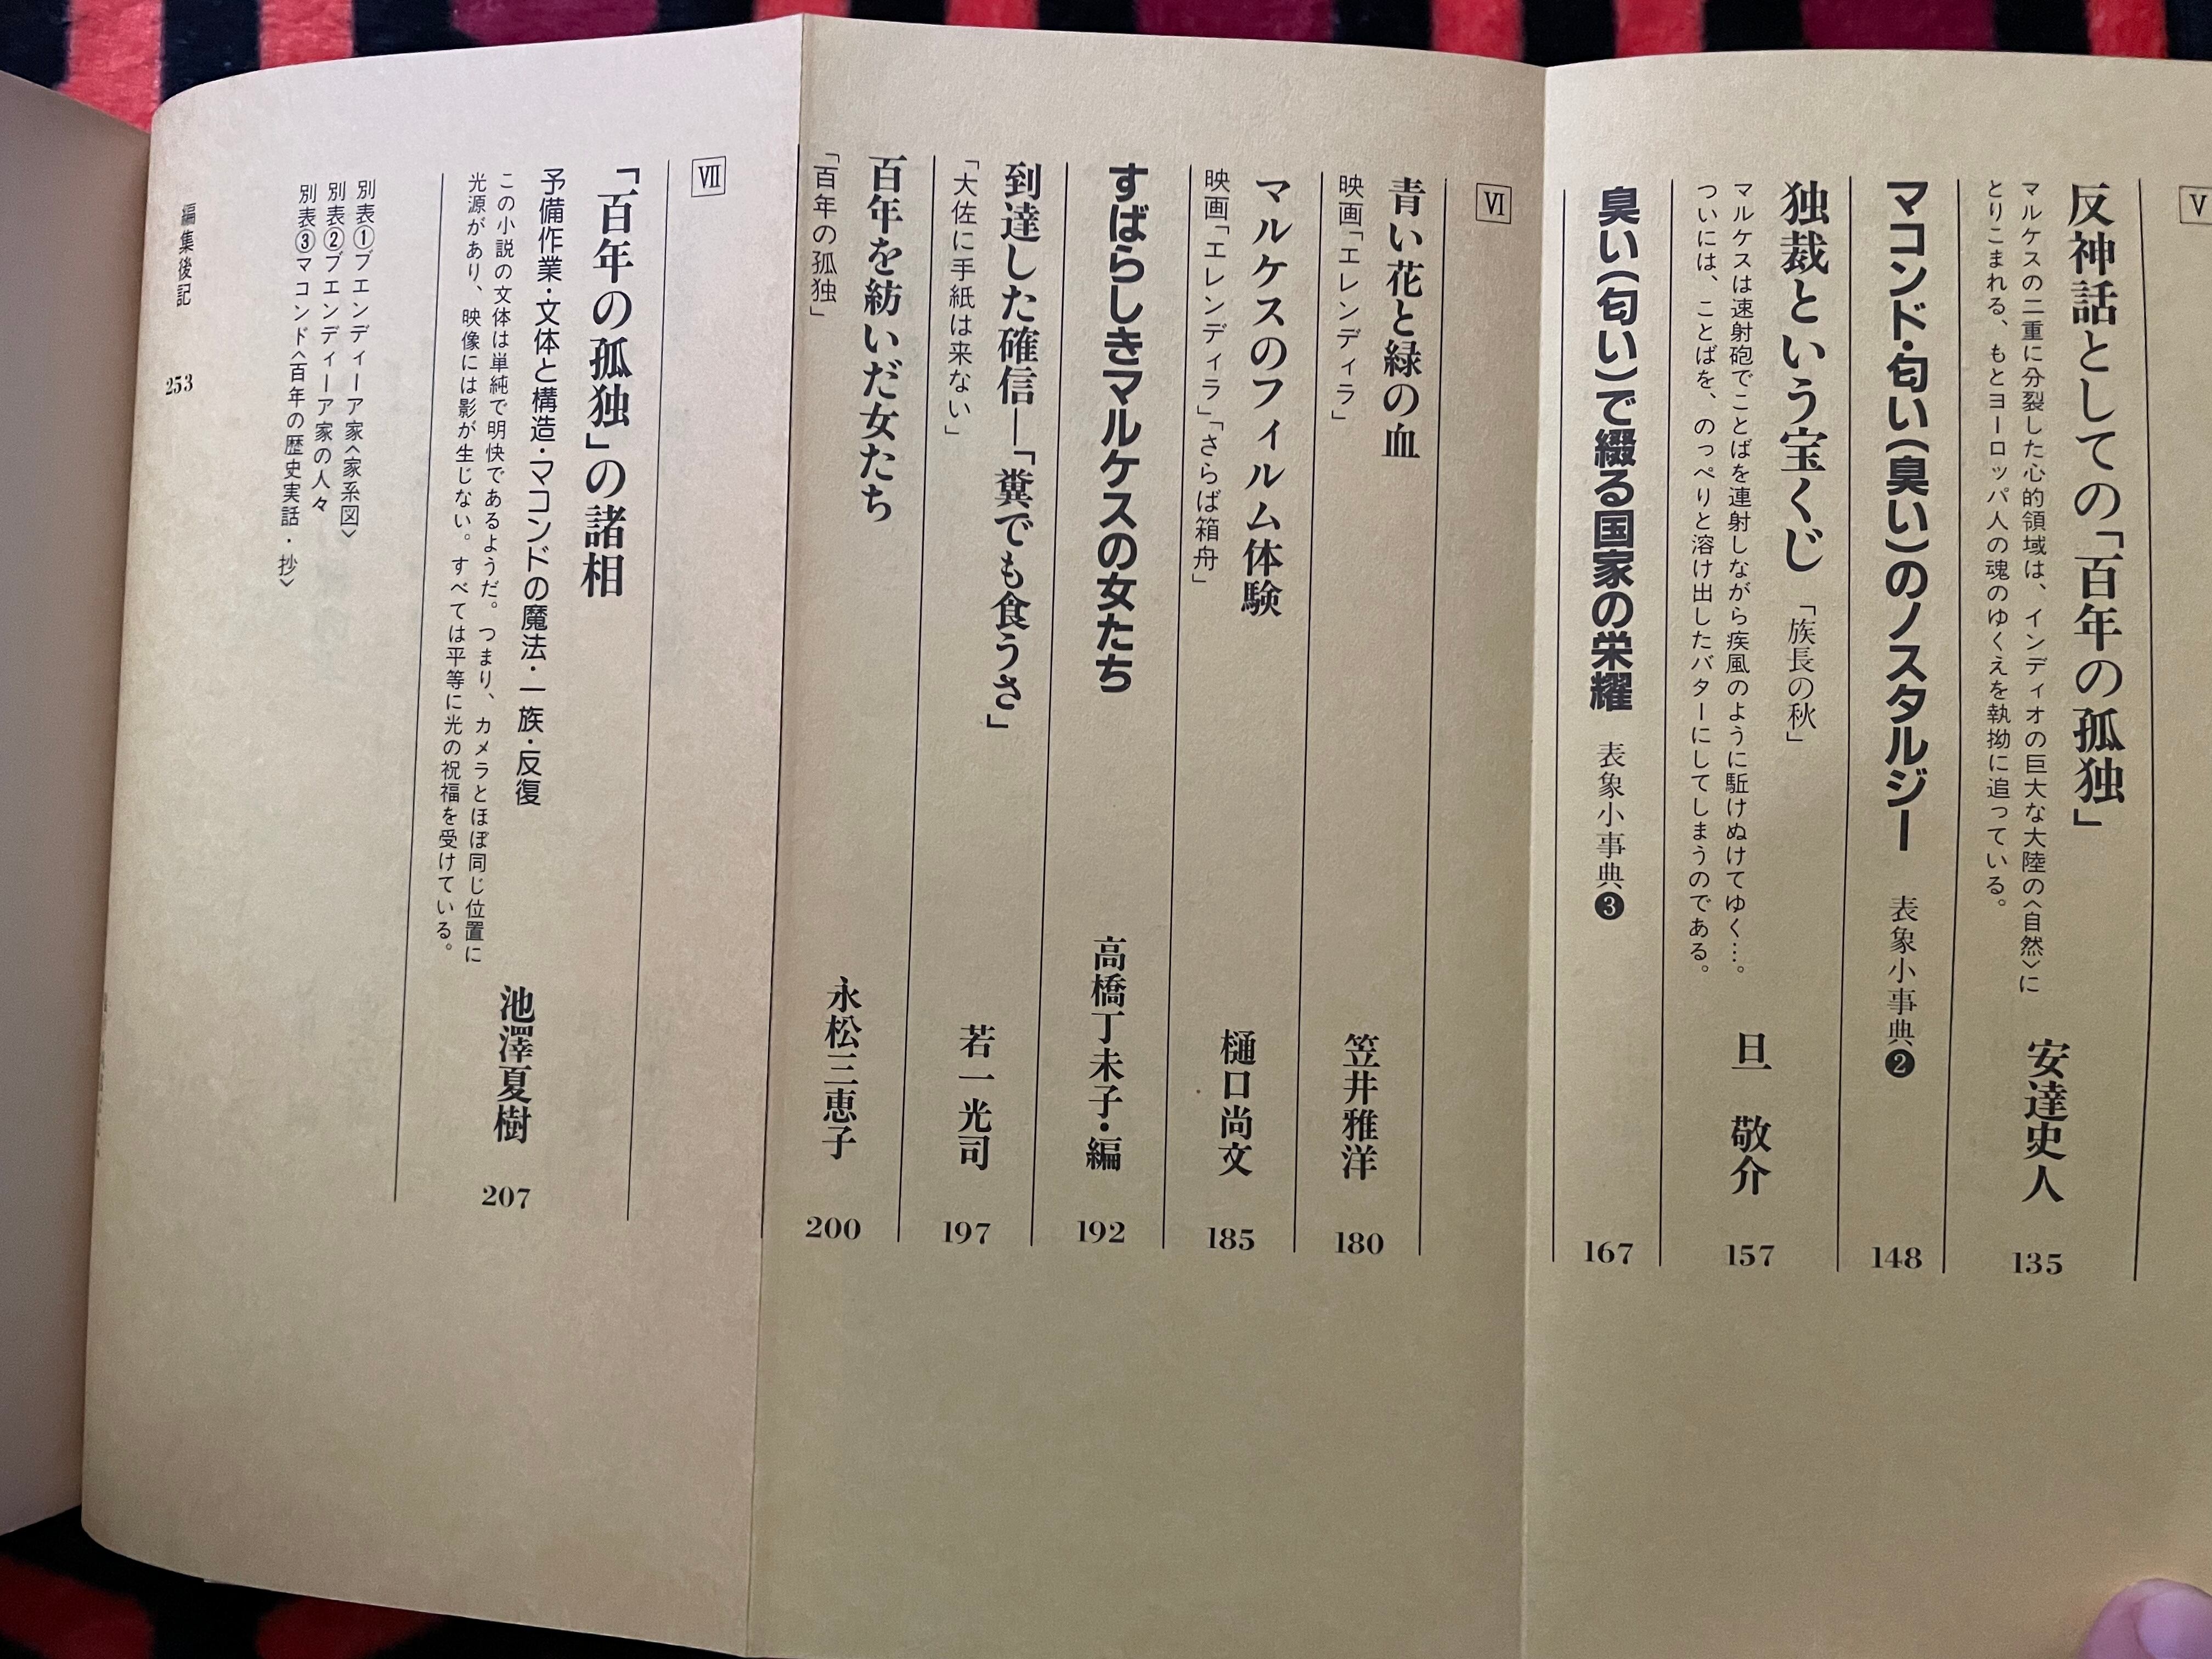 V
反神話としての「百年の孤独」
マルケスの二重に分裂した心的領域は、インディオの巨大な大陸の〈自然〉に
とりこまれる、もとヨーロッパ人の魂のゆくえを執拗に追っている。
安達史人
135
マコンド・匂い(臭い)のノスタルジー 表象小事典❷
148
独裁という宝くじ 「族長の秋」
マルケスは速射砲でことばを連射しながら疾風のように駈けぬけてゆく…。
ついには、ことばを、のっぺりと溶け出したバターにしてしまうのである。
旦 敬介
157
臭い(匂い)で綴る国家の栄耀 表象小事典❸
167
VI
青い花と緑の血
映画「エレンディラ」
笠井雅洋
180
マルケスのフィルム体験
映画「エレンディラ」「さらば箱舟」
樋口尚文
185
すばらしきマルケスの女たち
高橋丁未子・編
192
到達した確信―「糞でも食うさ」
「大佐に手紙は来ない」
若一光司
197
百年を紡いだ女たち
「百年の孤独」
永松三恵子
200
VII
「百年の孤独」の諸相
予備作業・文体と構造・マコンドの魔法・一族・反復
この小説の文体は単純で明快であるようだ。つまり、カメラとほぼ同じ位置に
光源があり、映像には影が生じない。すべては平等に光の祝福を受けている。
池澤夏樹
207
別表①ブエンディーア家〈家系図〉
別表②ブエンディーア家の人々
別表③マコンド〈百年の歴史実話・抄〉
編集後記
253